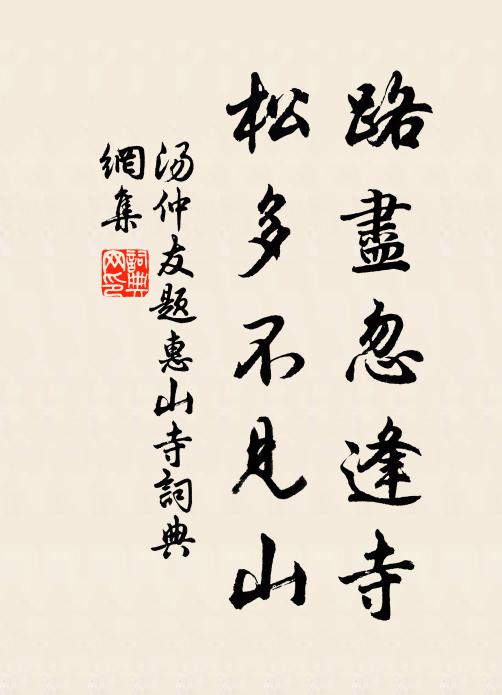 路盡忽逢寺
松多不見山
湯仲友題惠山寺詞典
網集
詞典
网印